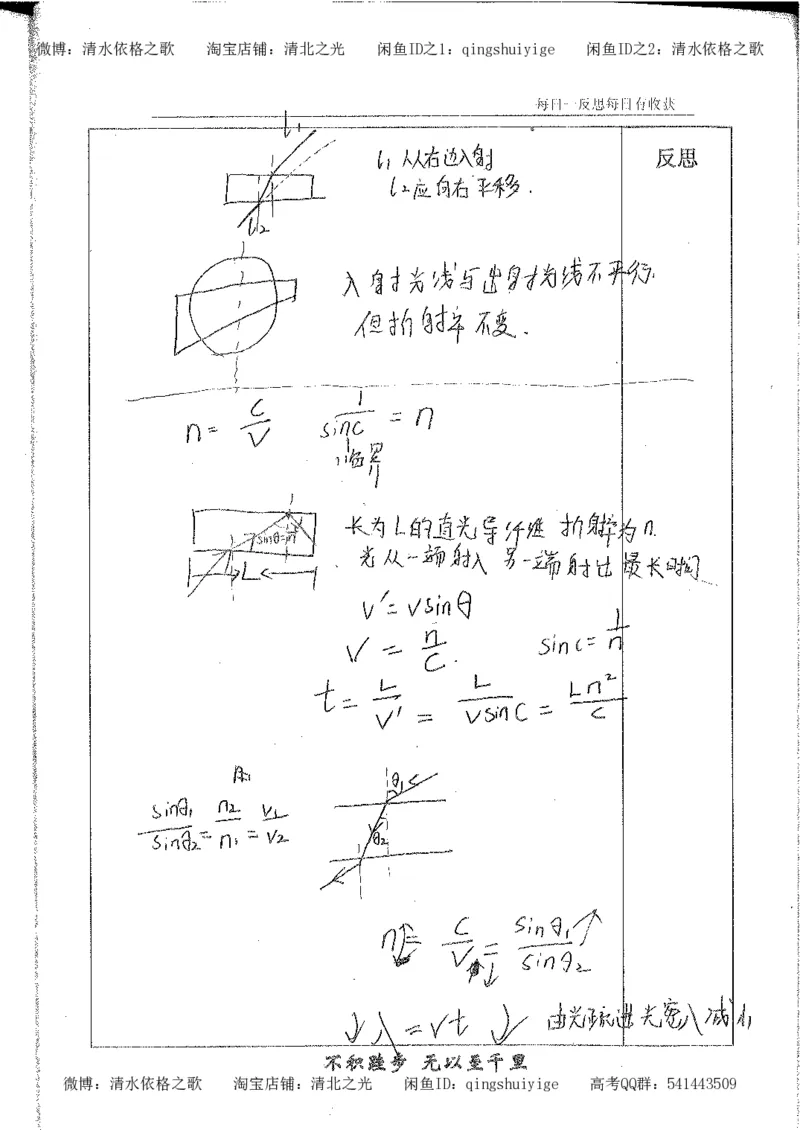 微博：清水依格之歌 淘宝店铺：清北之光 闲鱼ID之1：qingshuiyige 闲鱼ID之2：清水依格之歌
每日一反思每日有收获
反思
l₁
l₁ 从右边入射
l₂应向右平移.
l₂
入射光线与出射光线不平行.
但折射率不变.
n = C/V 1/sinC = n
临界
长为L的直光导纤维 折射率为n.
sinθ=1/n
光从一端射入 另一端射出 最长时间
L
V' = Vsinθ
V = n/C. sinC = 1/n
t = L/V' = L/VsinC = Ln²/C
θ₁
sinθ₁/sinθ₂ = n₂/n₁ = V₁/V₂
θ₂
n = C/V = sinθ₁↑/sinθ₂
↓λ = Vt ↓ 由光疏进光密入减小
不积跬步 无以至千里
微博：清水依格之歌 淘宝店铺：清北之光 闲鱼ID：qingshuiyige 高考QQ群：541443509